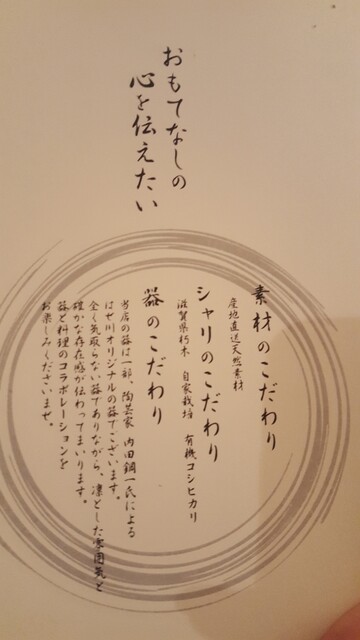 おもてなしの
心を伝えたい
素材のこだわり
産地直送天然素材
シャリのこだわり
滋賀県朽木 自家栽培 有機コシヒカリ
器のこだわり
当店の器は一部、陶芸家 内田鋼一氏による
はせ川オリジナルの器でございます。
全く気取らない器でありながら、凛とした雰囲気と
確かな存在感が伝わってまいります。
器と料理のコラボレーションを
お楽しみくださいませ。